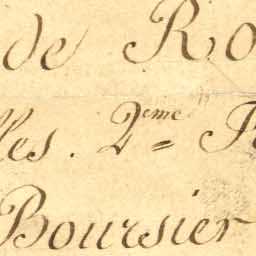 de Ro
lles. 2eme F
Boursier